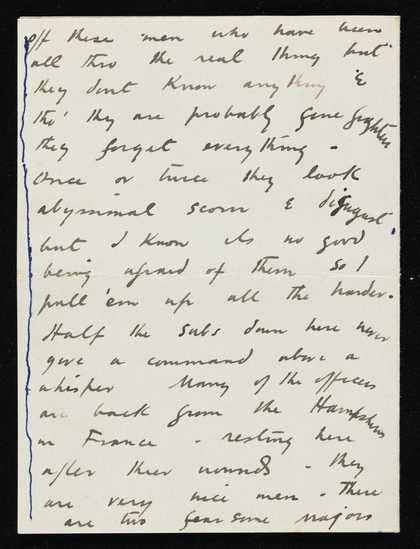 off these men who have been
all thro the real thing but
they dont know anything &
tho' they are probably fine fighters
they forget everything -
Once or twice they look
abysminal scorn & disgust
but I know its no good
being afraid of them so I
pull 'em up all the harder.
Half the subs down here never
give a command above a
whisper Many of the officers
are back from the Hampshires
in France - resting here
after their wounds - they
are very nice men - There
are two fearsome majors